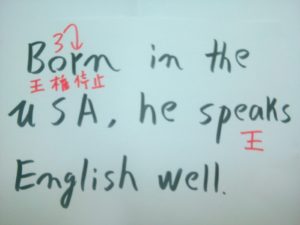 3
Born in the
王権停止
USA, he speaks
王
English well.